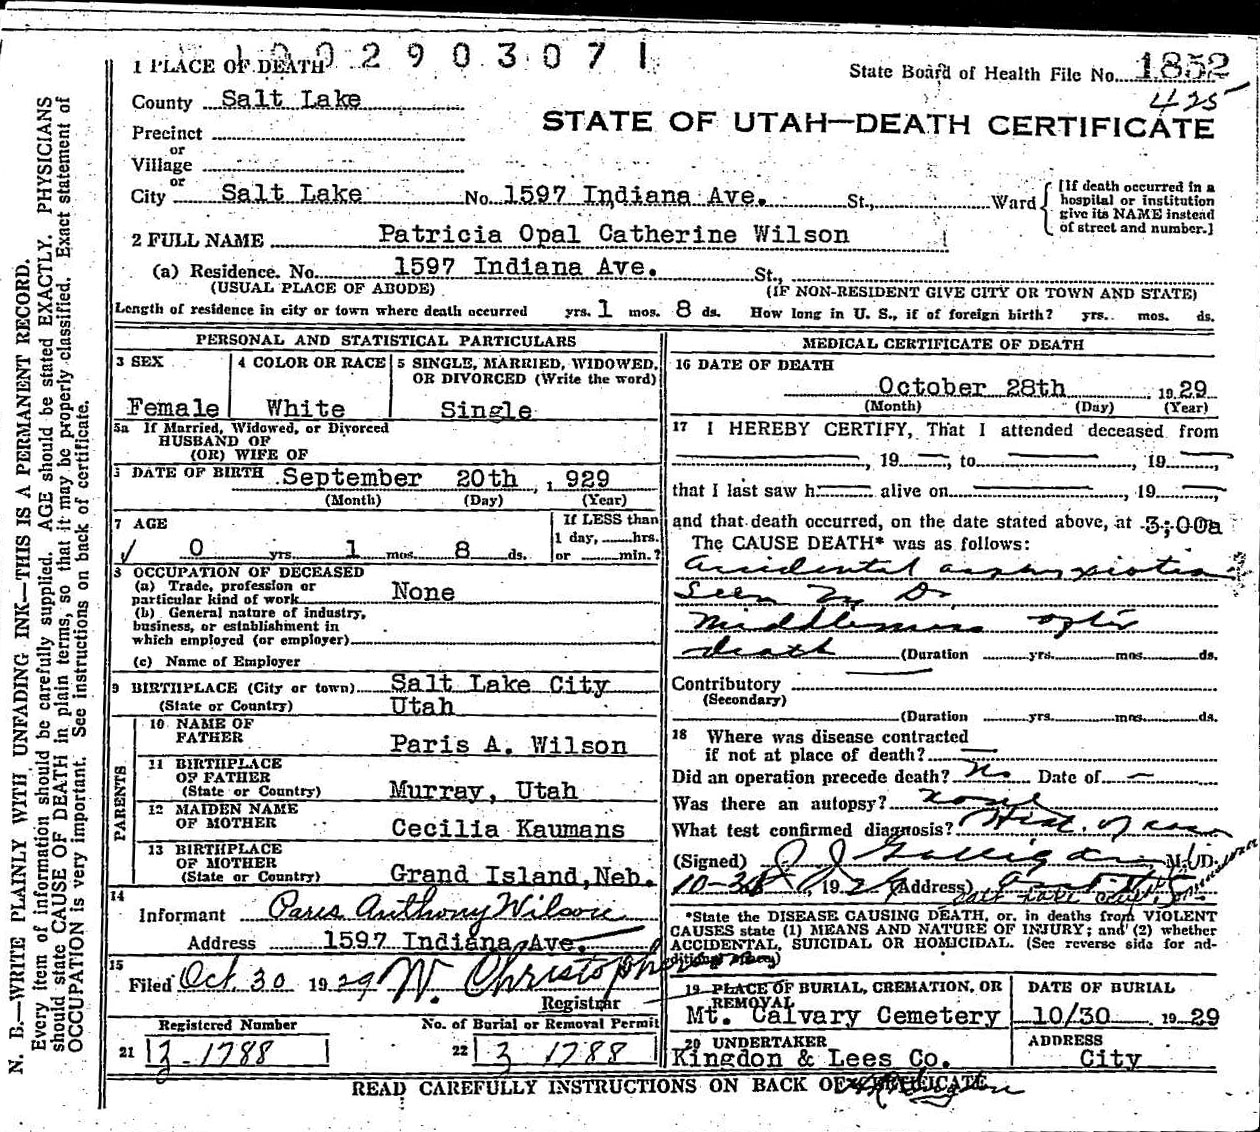 1002903071
1 PLACE OF DEATH
State Board of Health File No. 1852
425
County Salt Lake
STATE OF UTAH—DEATH CERTIFICATE
Precinct
or
Village
or
City Salt Lake No. 1597 Indiana Ave. St., Ward
[If death occurred in a
hospital or institution
give its NAME instead
of street and number.]
2 FULL NAME Patricia Opal Catherine Wilson
(a) Residence. No. 1597 Indiana Ave. St.,
(USUAL PLACE OF ABODE) (IF NON-RESIDENT GIVE CITY OR TOWN AND STATE)
Length of residence in city or town where death occurred yrs. 1 mos. 8 ds. How long in U. S., if of foreign birth? yrs. mos. ds.
PERSONAL AND STATISTICAL PARTICULARS
3 SEX
Female
4 COLOR OR RACE
White
5 SINGLE, MARRIED, WIDOWED,
OR DIVORCED (Write the word)
Single
5a If Married, Widowed, or Divorced
HUSBAND OF
(OR) WIFE OF
DATE OF BIRTH September 20th , 929
(Month) (Day) (Year)
7 AGE
0 yrs. 1 mos. 8 ds.
If LESS than
1 day, hrs.
or min.?
8 OCCUPATION OF DECEASED
(a) Trade, profession or
particular kind of work None
(b) General nature of industry,
business, or establishment in
which employed (or employer)
(c) Name of Employer
9 BIRTHPLACE (City or town) Salt Lake City
(State or Country) Utah
PARENTS
10 NAME OF
FATHER Paris A. Wilson
11 BIRTHPLACE
OF FATHER
(State or Country) Murray, Utah
12 MAIDEN NAME
OF MOTHER Cecilia Kaumans
13 BIRTHPLACE
OF MOTHER
(State or Country) Grand Island, Neb.
14
Informant Paris Anthony Wilson
Address 1597 Indiana Ave.
15
Filed Oct. 30 1929 W. Christopherson
Registrar
Registered Number
21 3-1788
No. of Burial or Removal Permit
22 3 1788
MEDICAL CERTIFICATE OF DEATH
16 DATE OF DEATH
October 28th 1929
(Month) (Day) (Year)
17 I HEREBY CERTIFY, That I attended deceased from
, 19 , to , 19 ,
that I last saw h alive on , 19 ,
and that death occurred, on the date stated above, at 3;00a
The CAUSE DEATH* was as follows:
accidental asphyxiation
Seen by Dr.
Middlemiss after
death (Duration yrs. mos. ds.
Contributory
(Secondary)
(Duration yrs. mos. ds.
18 Where was disease contracted
if not at place of death?
Did an operation precede death? No Date of —
Was there an autopsy? none
What test confirmed diagnosis? Hist. of case
(Signed) J J Galligan M.D.
1929 (Address)
*State the DISEASE CAUSING DEATH, or, in deaths from VIOLENT
CAUSES state (1) MEANS AND NATURE OF INJURY; and (2) whether
ACCIDENTAL, SUICIDAL OR HOMICIDAL. (See reverse side for ad-
ditional space)
19 PLACE OF BURIAL, CREMATION, OR
REMOVAL
Mt. Calvary Cemetery
DATE OF BURIAL
10/30 1929
20 UNDERTAKER
Kingdon & Lees Co.
ADDRESS
City
READ CAREFULLY INSTRUCTIONS ON BACK OF CERTIFICATE
N. B.—WRITE PLAINLY WITH UNFADING INK—THIS IS A PERMANENT RECORD.
Every item of information should be carefully supplied. AGE should be stated EXACTLY. PHYSICIANS
should state CAUSE OF DEATH in plain terms, so that it may be properly classified. Exact statement of
OCCUPATION is very important. See instructions on back of certificate.